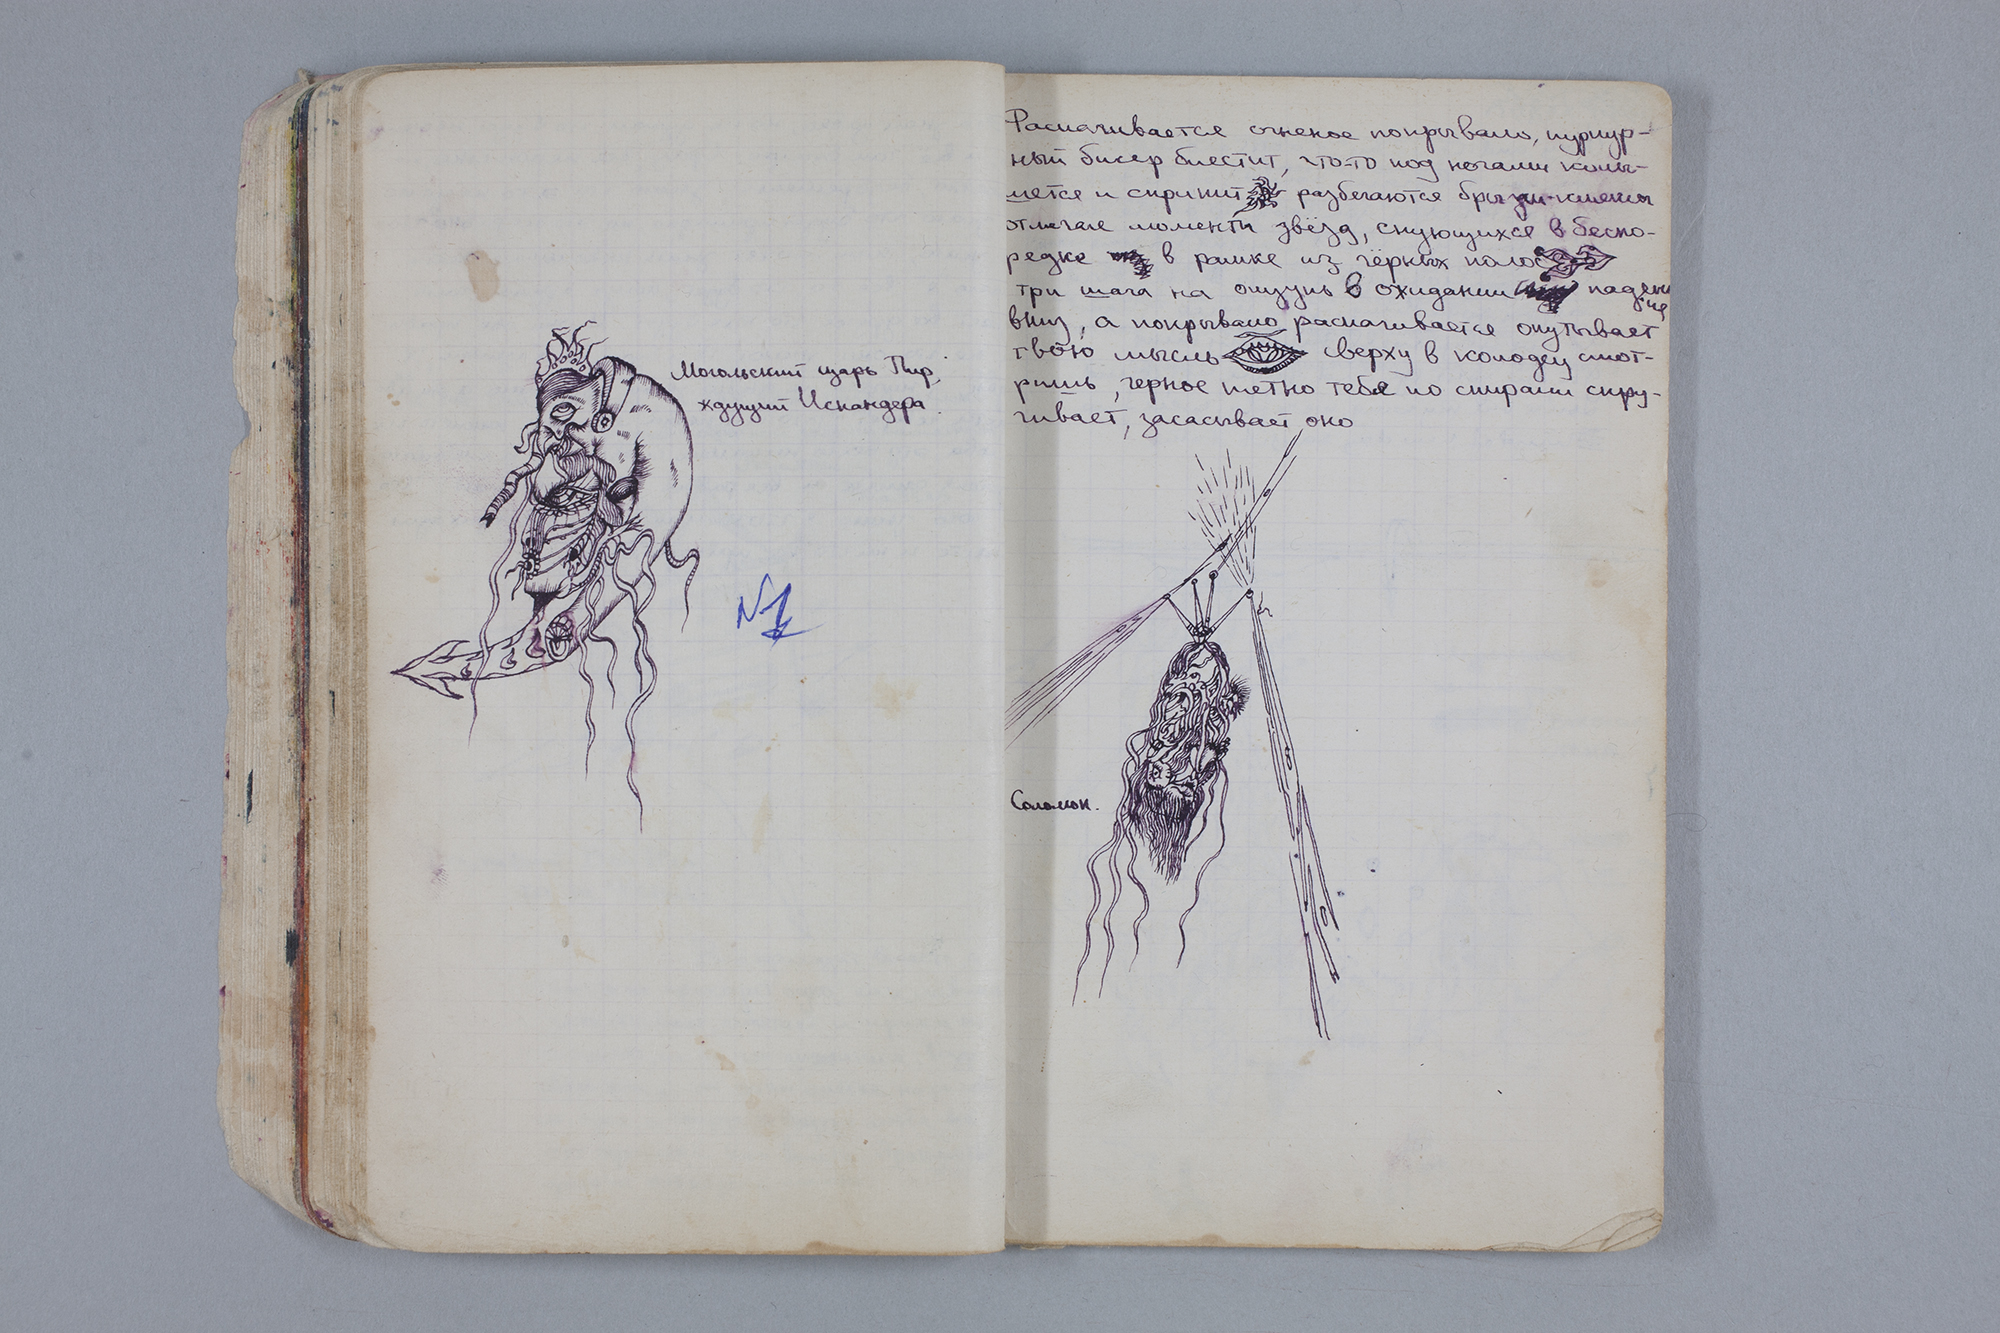 Могольский царь Пир,
ждущий Искандера.
N1
Раскачивается огненое покрывало, пурпур-
ный бисер блестит, что-то под ногами колы-
шется и скрипит разбегаются брызги-кляксы
отмечае моменты звёзд, снующихся в беспо-
редке в рамке из чёрных полос
три шага на ощупь в ожидании падения
вниз, а покрывало раскачивается опутывает
твою мысль сверху в колодец смот-
ришь, черное пятно тебя по спирали скру-
чивает, засасывает оно
Соломон.